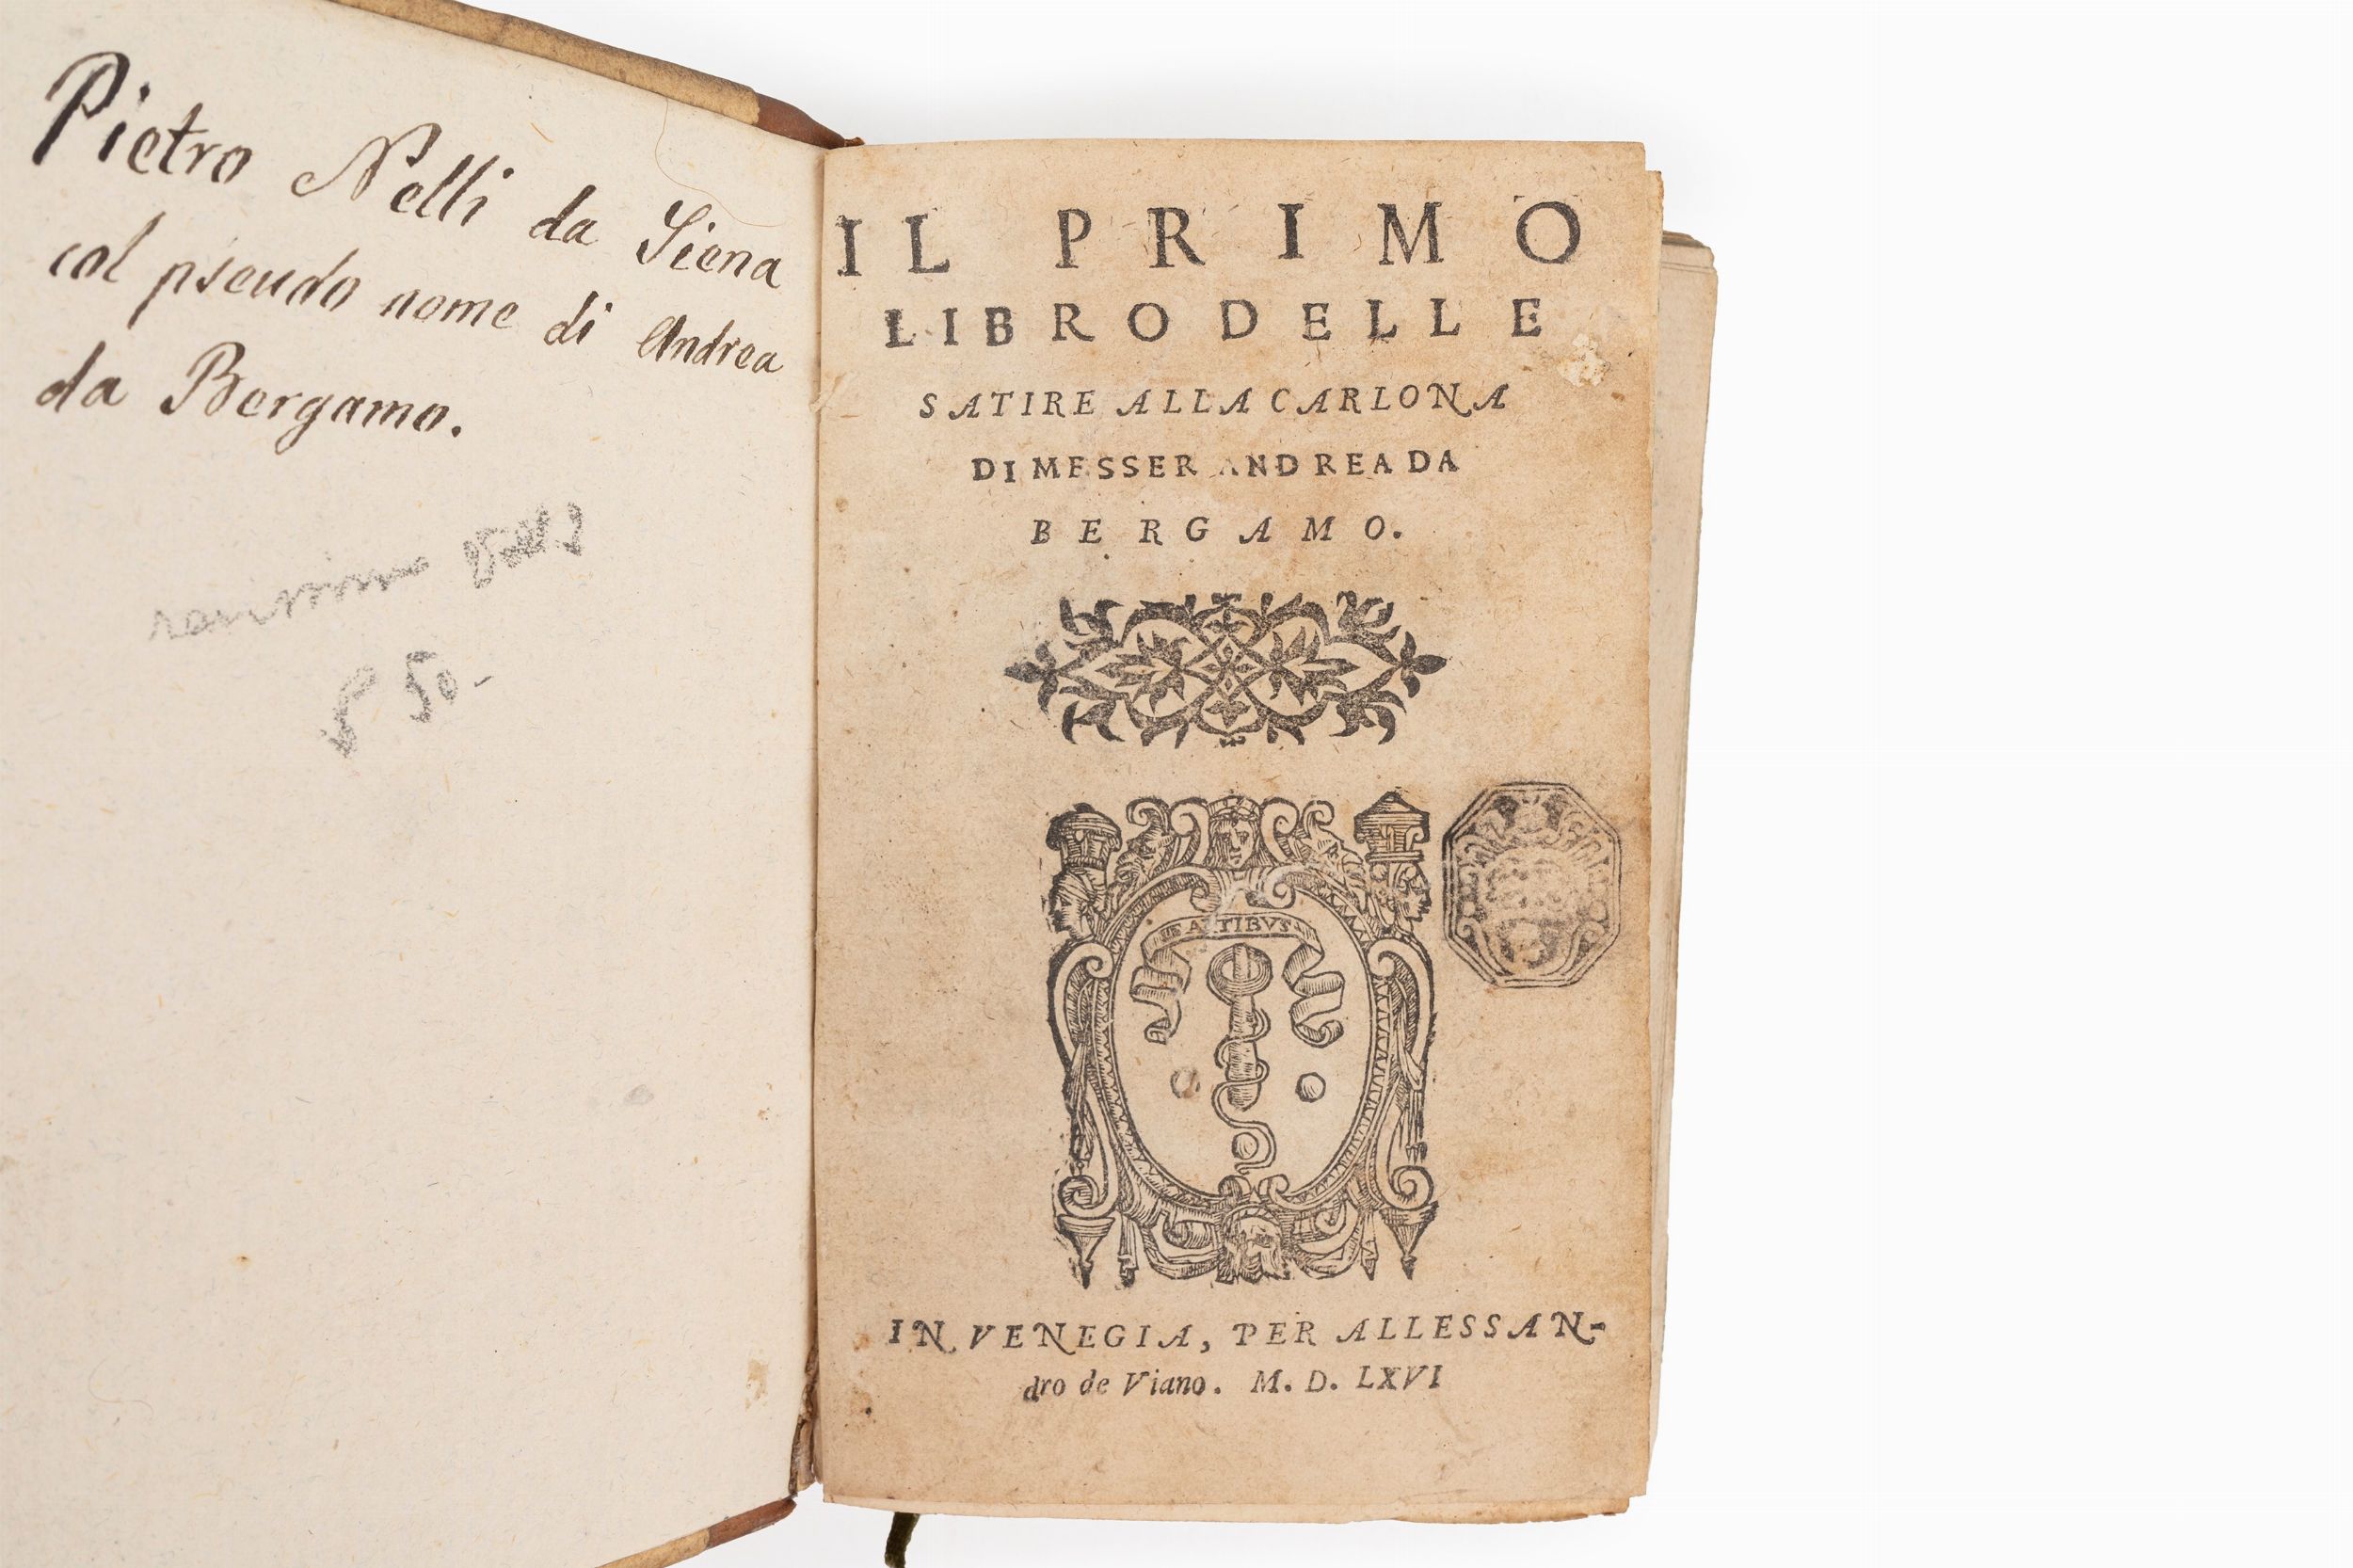 Pietro Nelli da Siena
col pseudo nome di Andrea
da Bergamo.
50.-
IL PRIMO
LIBRO DELLE
SATIRE ALLA CARLONA
DI MESSER ANDREA DA
BERGAMO.
TIBVS
IN VENEGIA, PER ALLESSAN-
dro de Viano. M. D. LXVI